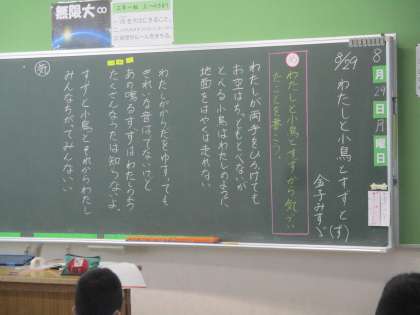 無限大∞
8
月
29
日
月
曜
日
8/29 わたしと小鳥とすずと(す)
金子みすゞ
め
わたしと小鳥とすずから気づい
たことを書こう。
わたしが両手をひろげても
お空はちっともとべないが
とべる小鳥はわたしのように
地面をはやくは走れない
わたしがからだをゆすっても
きれいな音はでないけど
あの鳴るすずはわたしのよう
たくさんなうたは知らないよ
すずと小鳥とそれからわたし
みんなちがってみんないい